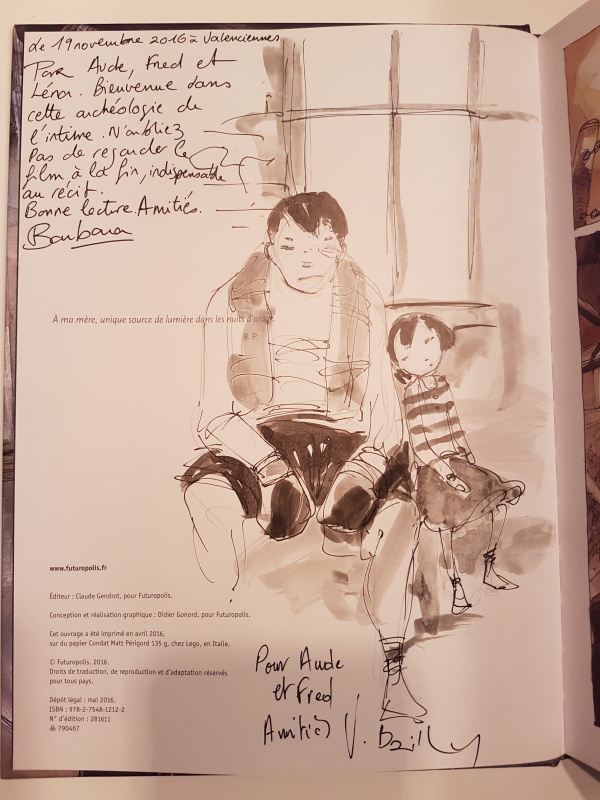 Le 19 novembre 2016 à Valenciennes
Pour Aude, Fred et
Léna. Bienvenue dans
cette archéologie de
l'intime. N'oubliez
pas de regarder le
film à la fin, indispensable
au récit.
Bonne lecture. Amitiés.
Barbara
À ma mère, unique source de lumière dans les nuits d'orage.
B. P.
www.futuropolis.fr
Éditeur : Claude Gendrot, pour Futuropolis.
Conception et réalisation graphique : Didier Gonord, pour Futuropolis.
Cet ouvrage a été imprimé en avril 2016,
sur du papier Condat Matt Périgord 135 g, chez Lego, en Italie.
© Futuropolis, 2016.
Droits de traduction, de reproduction et d'adaptation réservés
pour tous pays.
Dépôt légal : mai 2016.
ISBN : 978-2-7548-1212-2
N° d'édition : 281611
790467
Pour Aude
et Fred
Amitiés V. Bailly